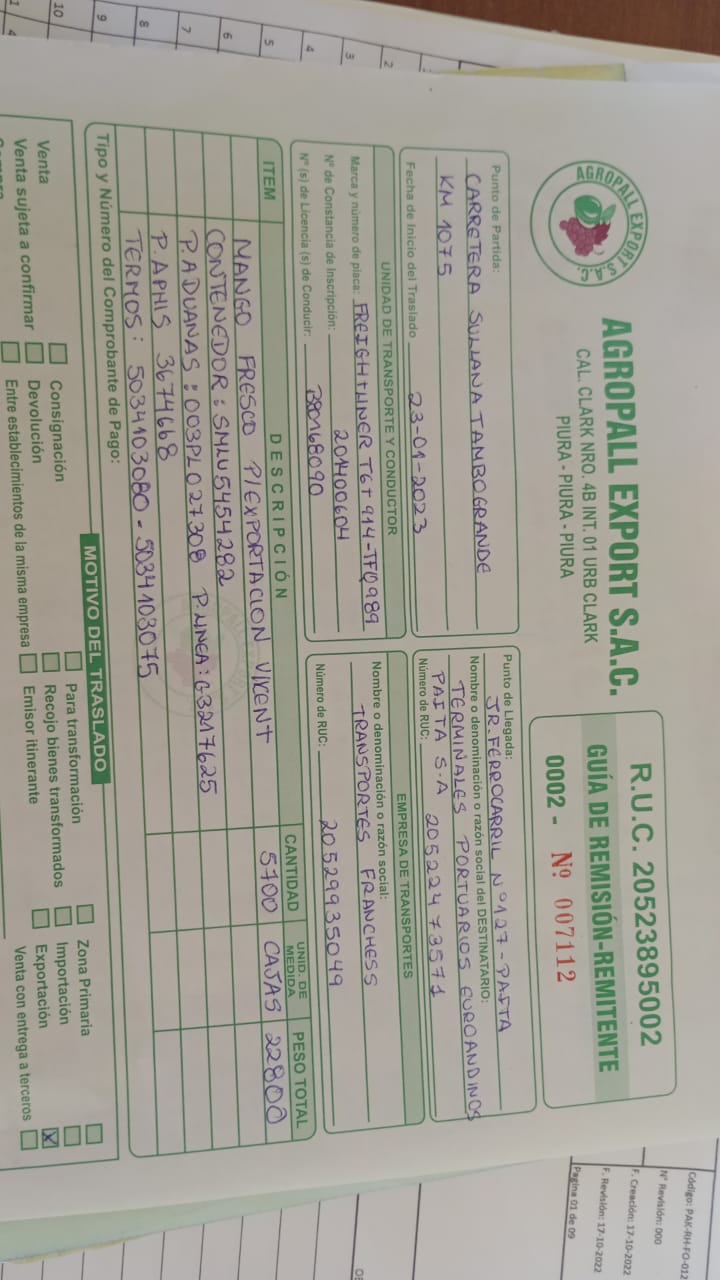 AGROPALL EXPORT
S.A.C.
AGROPALL EXPORT S.A.C.
CAL. CLARK NRO. 4B INT. 01 URB CLARK
PIURA - PIURA - PIURA
R.U.C. 20523895002
GUÍA DE REMISIÓN-REMITENTE
0002 - Nº 007112
Punto de Partida:
CARRETERA SULLANA TAMBOGRANDE
KM 1075
Fecha de Inicio del Traslado 23-01-2023
Punto de Llegada:
JR. FERROCARRIL Nº 127 - PAITA
Nombre o denominación o razón social del DESTINATARIO:
TERMINALES PORTUARIOS EUROANDINOS
PAITA S.A 20522473571
Número de RUC:
UNIDAD DE TRANSPORTE Y CONDUCTOR
Marca y número de placa: FREIGHTLINER T6T914-TFQ989
Nº de Constancia de Inscripción: 201400604
Nº (s) de Licencia (s) de Conducir:
EMPRESA DE TRANSPORTES
Nombre o denominación o razón social:
TRANSPORTES FRANCHESS
Número de RUC: 20529935049
ITEM DESCRIPCIÓN CANTIDAD UNID. DE MEDIDA PESO TOTAL
MANGO FRESCO P/EXPORTACION V/KENT 5700 CAJAS 22800
CONTENEDOR: SMLU5454282
P.ADUANAS: 003PL027308 P.LINEA: G3217625
P.APHIS 3674668
TERMOS: 5034103080 - 5034103075
Tipo y Número del Comprobante de Pago:
MOTIVO DEL TRASLADO
Venta Consignación Para transformación Zona Primaria
Venta sujeta a confirmar Devolución Recojo bienes transformados Importación
Entre establecimientos de la misma empresa Emisor itinerante Exportación X
Venta con entrega a terceros
Código: PAK-RH-FO-012
Nº Revisión: 000
F. Creación: 17-10-2022
F. Revisión: 17-10-2022
Pagina 01 de 09
2
3
4
5
6
7
8
9
10